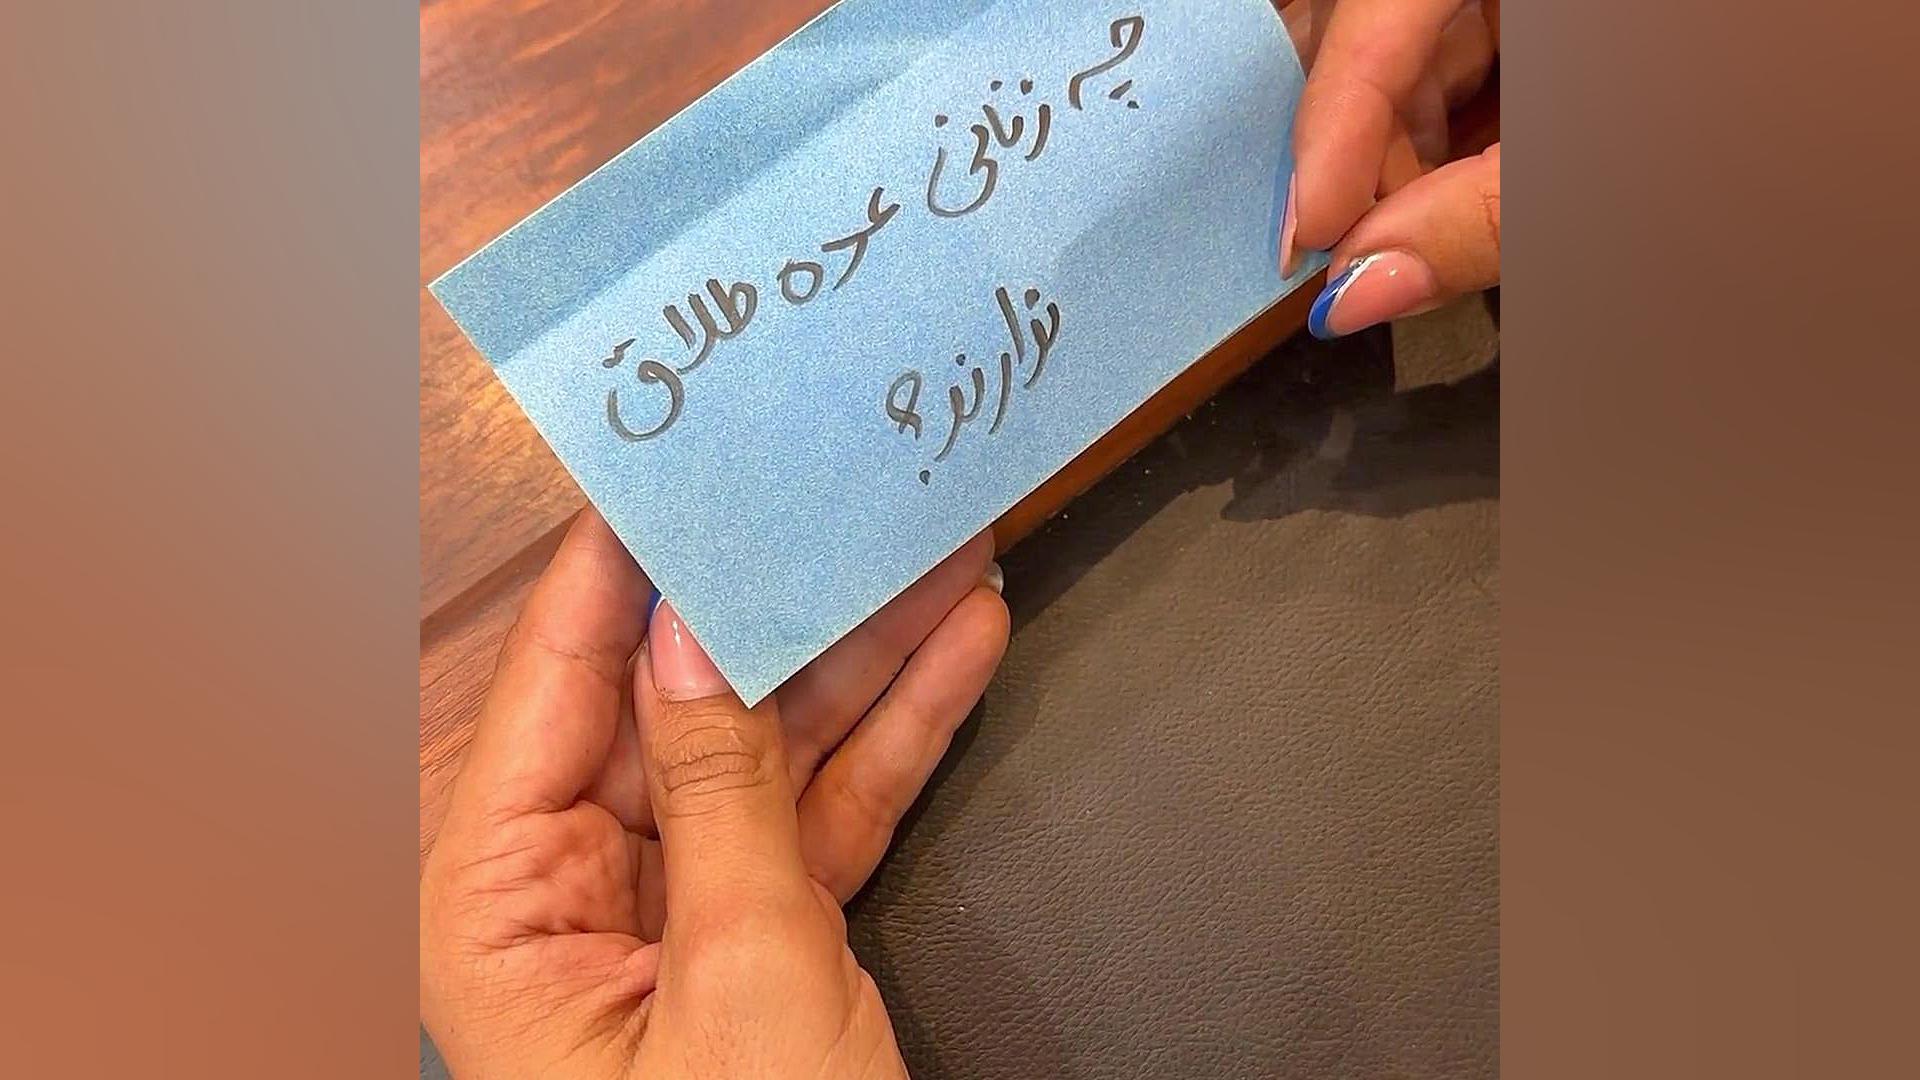 چه زنانی عده طلاق
ندارند؟